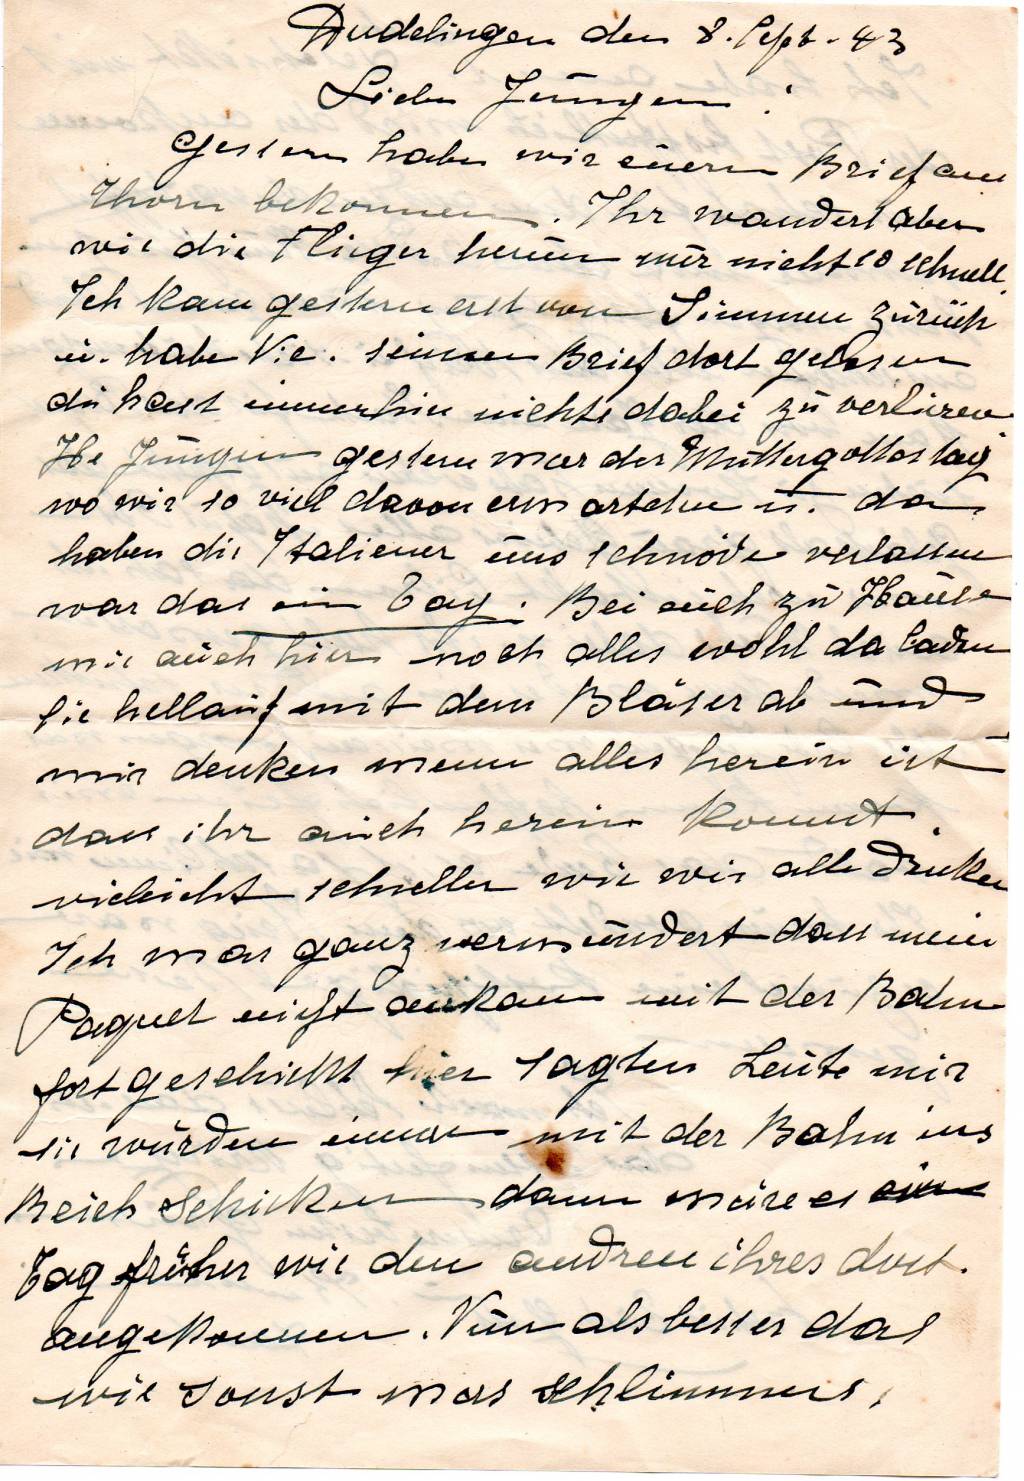 Dudelingen den 8. Sept. 43
Liebe Jungen!
Gestern haben wir euern Brief aus
Thorn bekommen. Ihr wandert aber
wie die Flieger herum nur nicht so schnell.
Ich kam gestern erst von Simmern zurück
u. habe Vic. seinen Brief dort gelesen
du hast immerhin nichts dabei zu verlieren
He Jungen gestern war der Muttergottestag
wo wir so viel davon erwarteten u. da
haben die Italiener uns schnöde verlassen
war das ein Tag. Bei euch zu Hause
wie auch hier noch alles wohl da laden
sie hellauf mit dem Bläser ab und
wir denken wenn alles herein ist
dass ihr auch herein kommt
vieleicht schneller wie wir alle denken
Ich war ganz verwundert dass mein
Paquet nicht ankam mit der Bahn
fortgeschickt hier sagten Leute mir
sie würden immer mit der Bahn ins
Reich schicken dann wäre es ein
Tag früher wie den andren ihres dort
angekommen. Nun als besser das
wie sonst was schlimmes.